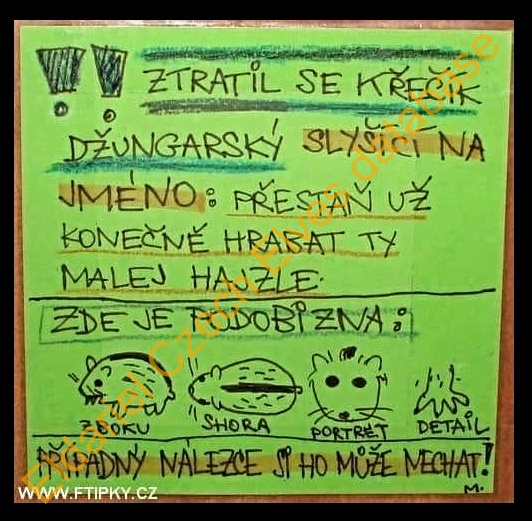 !! ZTRATIL SE KŘEČIK
DŽUNGARSKÝ SLYŠÍCÍ NA
JMÉNO: PŘESTAŇ UŽ
KONEČNĚ HRABAT TY
MALEJ HAJZLE.
ZDE JE PODOBIZNA:
ZBOKU SHORA PORTRÉT DETAIL
PŘÍPADNÝ NÁLEZCE SI HO MŮŽE NECHAT!
M.
WWW.FTIPKY.CZ
Eldariel Czech Elves database